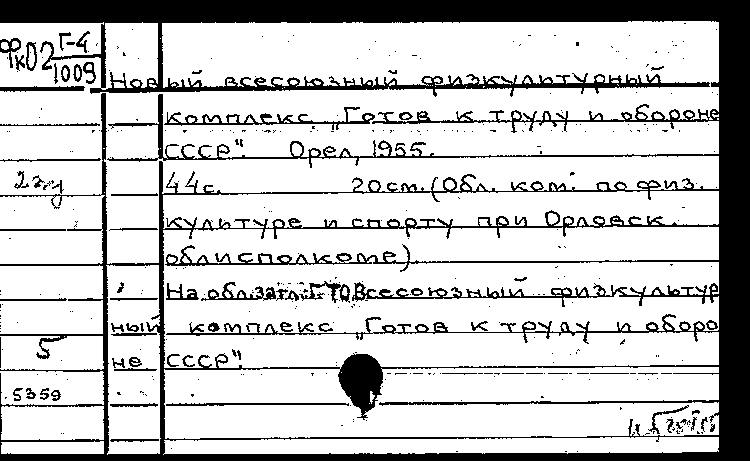 ФК02 Г-4
1009
Новый всесоюзный физкультурный
комплекс „Готов к труду и обороне
СССР". Орел, 1955.
2 эку
44с. 20см. (Обл. ком. по физ.
культуре и спорту при Орловск.
облисполкоме)
На обл. загл: ГТО Всесоюзный физкультур
ный комплекс „Готов к труду и оборо
5
не СССР".
5359